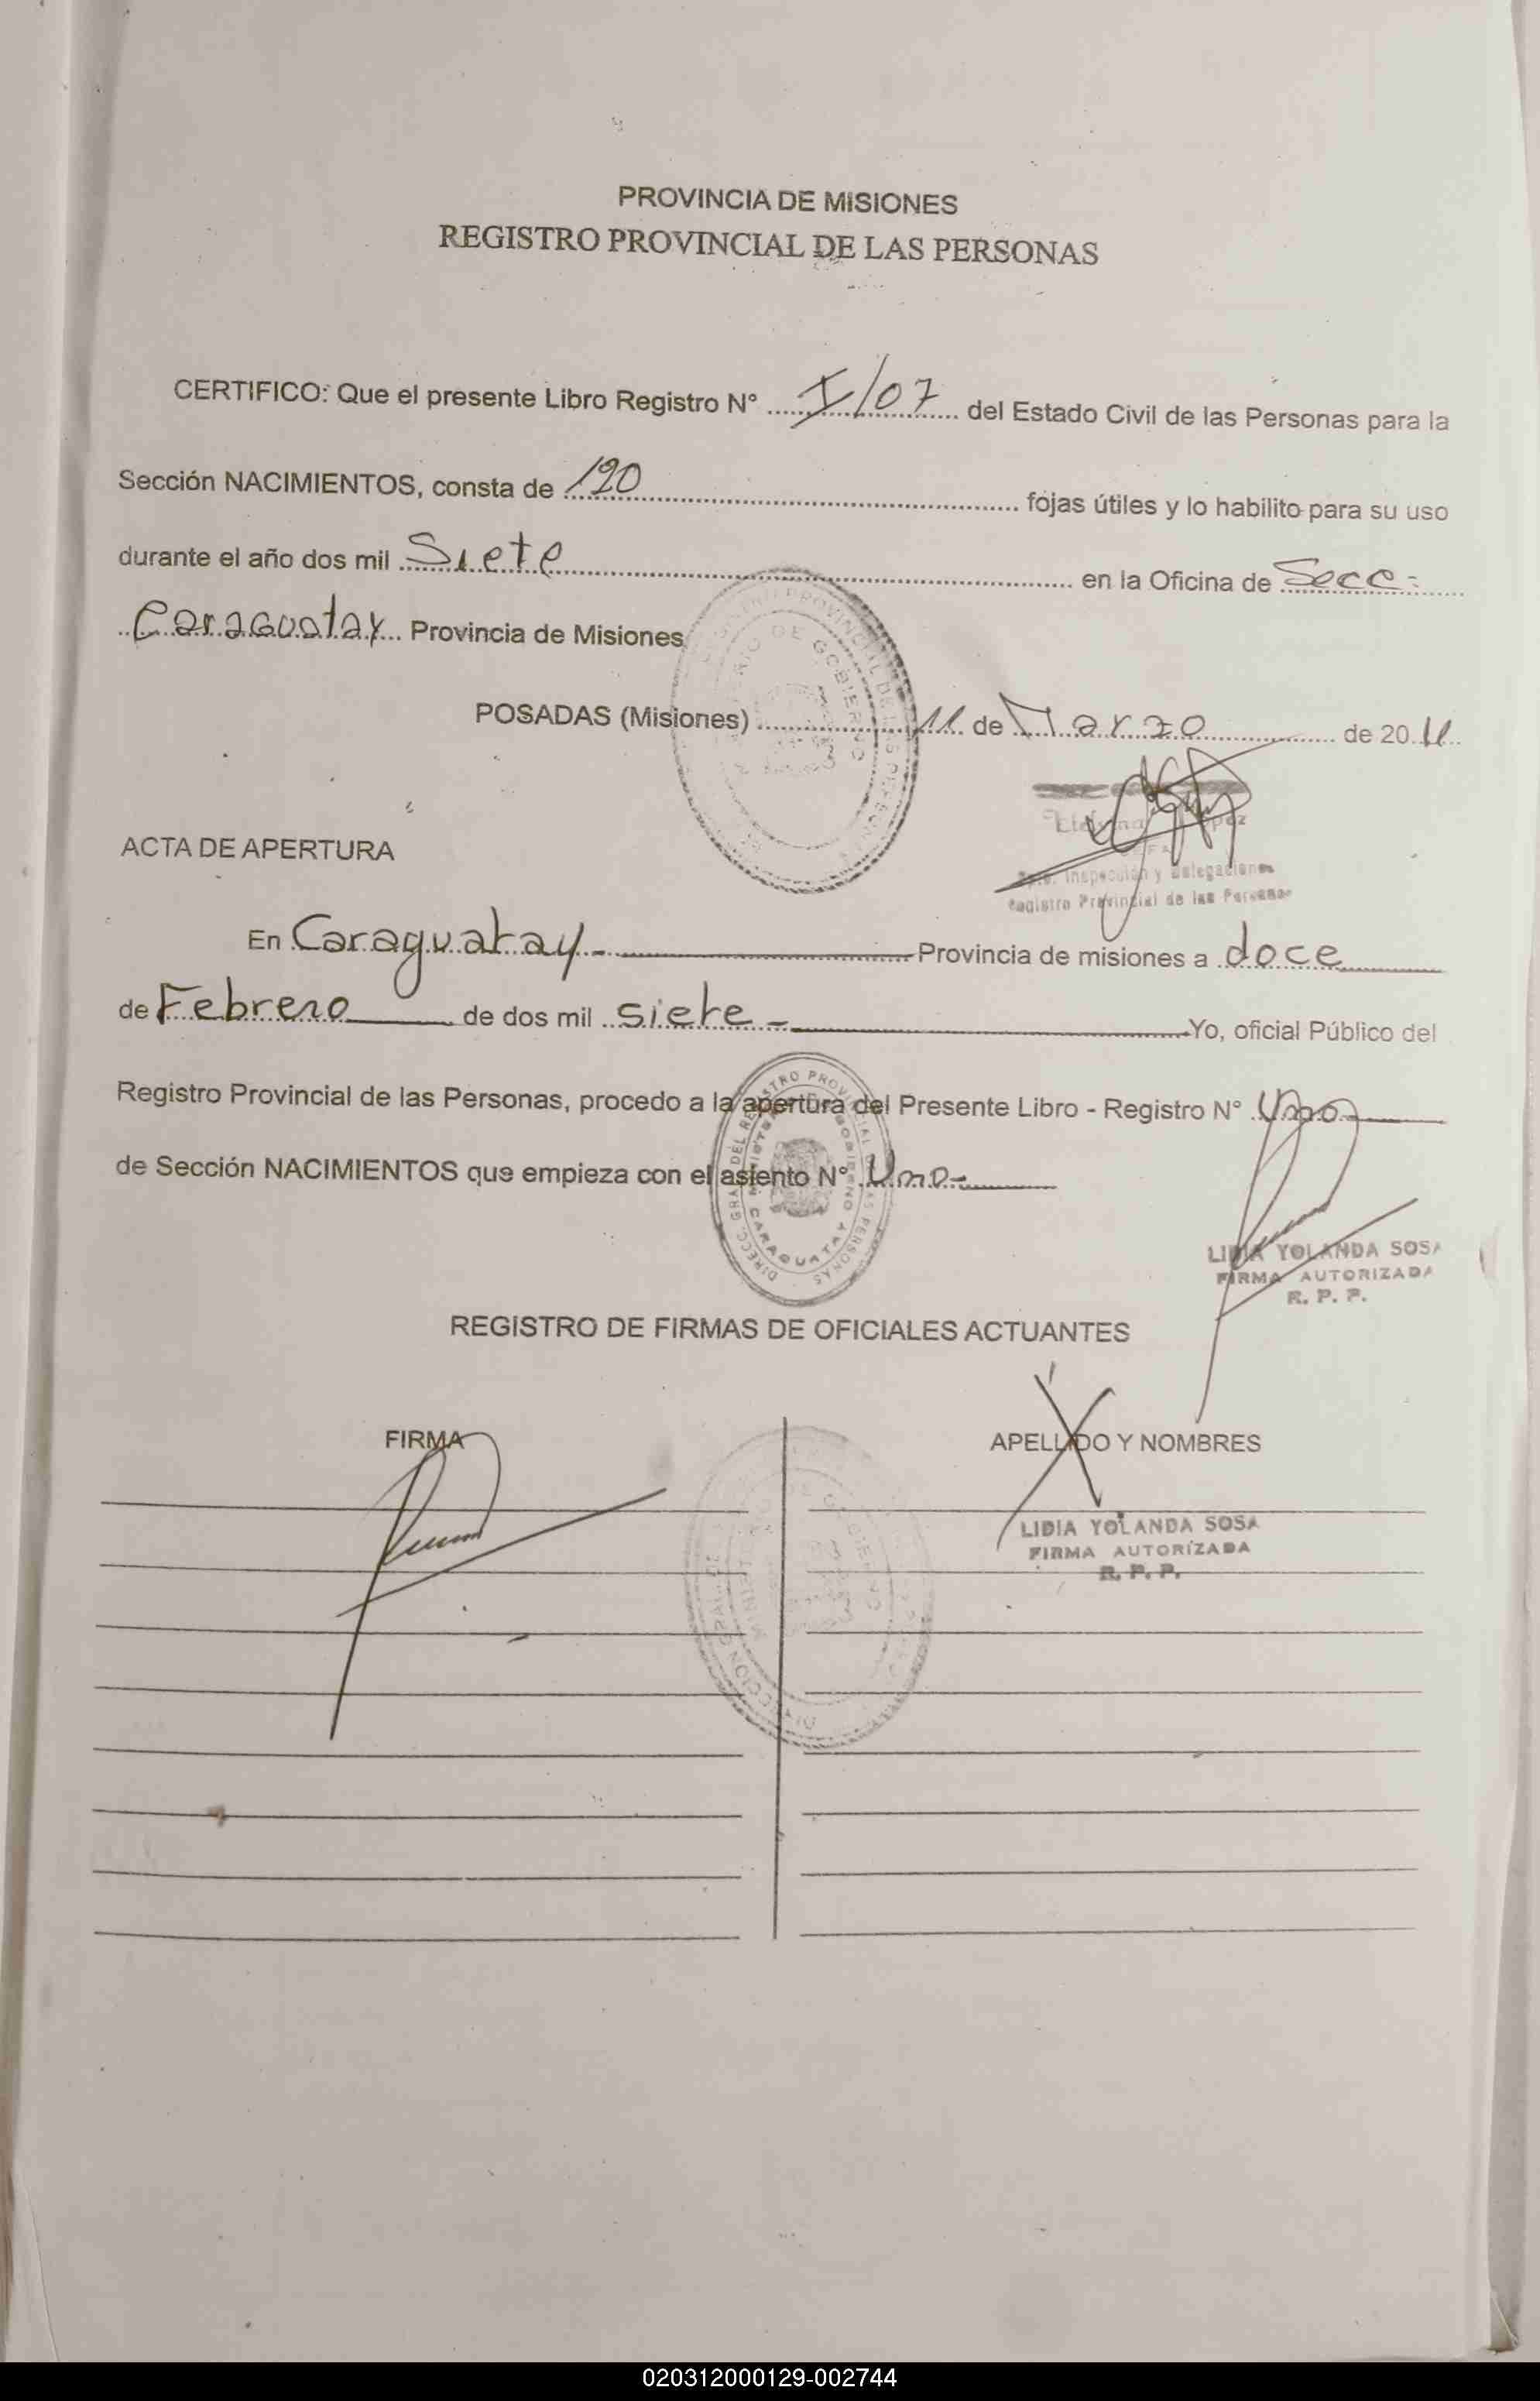 PROVINCIA DE MISIONES
REGISTRO PROVINCIAL DE LAS PERSONAS
CERTIFICO: Que el presente Libro Registro N° I/07 del Estado Civil de las Personas para la
Sección NACIMIENTOS, consta de 120 fojas útiles y lo habilito para su uso
durante el año dos mil Siete en la Oficina de Secc-
Caraguatay Provincia de Misiones
POSADAS (Misiones) 11 de Marzo de 2011
ACTA DE APERTURA
Inspección y Delegaciones
Registro Provincial de las Personas
En Caraguatay- Provincia de misiones a doce
de Febrero de dos mil siete - Yo, oficial Público del
Registro Provincial de las Personas, procedo a la apertura del Presente Libro - Registro N° Uno
de Sección NACIMIENTOS que empieza con el asiento N° Uno-
DIRECC. GRAL DEL REGISTRO PROVINCIAL DE LAS PERSONAS
MINISTERIO GOBIERNO
CARAGUATAY
LIDIA YOLANDA SOSA
FIRMA AUTORIZADA
R. P. P.
REGISTRO DE FIRMAS DE OFICIALES ACTUANTES
FIRMA APELLIDO Y NOMBRES
LIDIA YOLANDA SOSA
FIRMA AUTORIZADA
R. P. P.
020312000129-002744